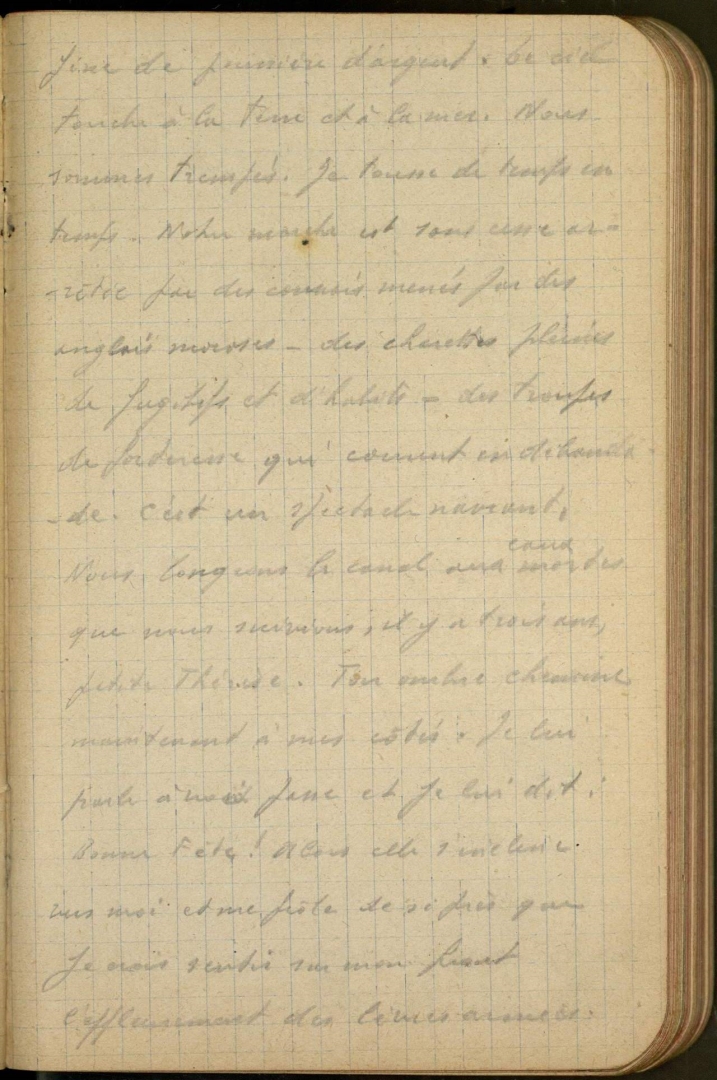 fine de poussière d'argent. Le ciel
touche à la terre et à la mer. Nous
sommes trempés. Je tousse de temps en
temps. Notre marche est sans cesse ar-
-rêtée par des convois menés par des
anglais moroses - des charettes pleines
de fugitifs et d'habits - des troupes
de forteresse qui courent en débanda-
-de. C'est un spectacle navrant.
Nous longeons le canal aux eaux mortes
que nous suivions, il y a trois ans,
petite Thérèse. Ton ombre chemine
maintenant à mes côtés. Je lui
parle à voix basse et je lui dit :
Bonne Fête ! Alors elle s'incline
vers moi et me frôle de si près que
je crois sentir sur mon front
l'effleurement des lèvres aimées.